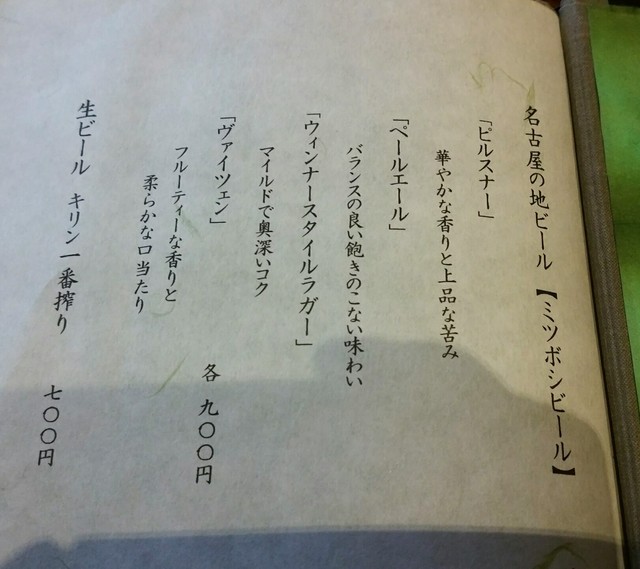 名古屋の地ビール 【ミツボシビール】
「ピルスナー」
華やかな香りと上品な苦み
「ペールエール」
バランスの良い飽きのこない味わい
「ウィンナースタイルラガー」
マイルドで奥深いコク
「ヴァイツェン」
フルーティーな香りと
柔らかな口当たり
各 九〇〇円
生ビール キリン一番搾り 七〇〇円